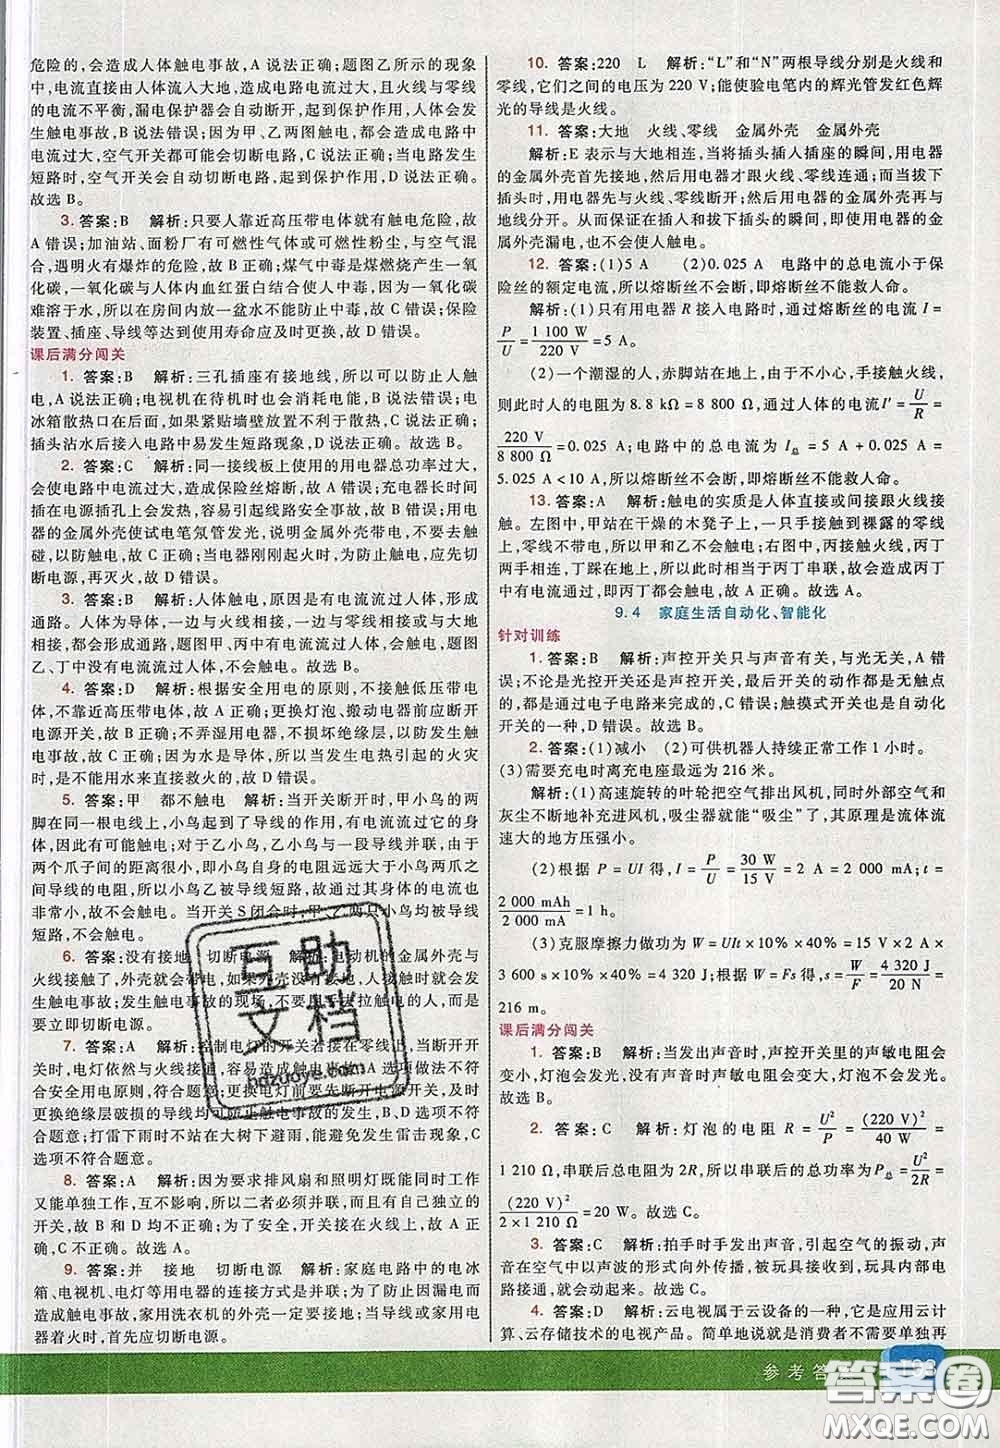 危险的,会造成人体触电事故,A 说法正确;题图乙所示的现象
中,电流直接由人体流入大地,会造成电路电流过大,且火线与零
线的电流不平衡,漏电保护器会自动断开,起到保护作用,人体会
发生触电事故,B 说法错误;因为甲、乙两图触电,都会造成电路中
电流过大,空气开关都可能会切断电路,C 说法正确;当电路发生
短路时,空气开关会自动切断电路,起到保护作用,D 说法正确。
故选 B。
3. 答案:B 解析:只要人靠近高压带电体就有触电危险,故
A 错误;加油站、面粉厂有可燃性气体或可燃性粉尘,与空气混合
后,遇明火有爆炸的危险,故 B 正确;煤气中毒是煤燃烧产生一氧
化碳,一氧化碳与人体内血红蛋白结合使人中毒,而一氧化碳很
难溶于水,所以在房间内放一盆水不能防止中毒,故 C 错误;保险
装置、插座、导线等达到使用寿命应及时更换,故 D 错误。
课后满分闯关
1. 答案:B 解析:三孔插座有接地线,所以可以防止人触
电,A 说法正确;电视机在待机时也会消耗电能,B 说法错误;电
冰箱散热口在后面,如果紧贴墙壁放置不利于散热,C 说法正确;
插头沾水后接入电路中易发生短路现象,D 说法正确。故选 B。
2. 答案:C 解析:同一接线板上使用的用电器总功率过大,
会使电路中电流过大,造成保险丝熔断,故 A 错误;充电器长时间
插在电源插孔上会发热,容易引起线路安全事故,故 B 错误;用电
器的金属外壳使试电笔氖管发光,说明金属外壳带电,不要去触
碰,以防触电,故 C 正确;当电器刚刚起火时,为防止触电,应先切
断电源,再灭火,故 D 错误。
3. 答案:B 解析:人体触电,原因是有电流流过人体,形成
通路。人体为导体,一边与火线相接,一边与零线相接或与大地
相接,会形成通路,题图甲、丙中有电流流过人体,为触电现象;题图
乙、丁中没有电流流过人体,不会触电。故选 B。
4. 答案:D 解析:根据安全用电的原则,不接触低压带电
体,不靠近高压带电体,故 A 正确;更换灯泡、搬动电器前应断开
电源开关,故 B 正确;不弄湿用电器,不损坏绝缘层,以防发生触
电事故,故 C 正确;因为水是导体,所以对于电热引起的火灾
时,不能用水来直接救火的,故 D 错误。
5. 答案:甲 都不触电 解析:当开关断开时,甲小鸟的两
脚在同一根电线上,小鸟起到了导线的作用,有电流流过它的身
体,因此甲会触电;对于乙小鸟,乙小鸟与一段导线并联,由于
两个爪子间的距离很小,即小鸟身体的电阻远远大于小鸟两爪之
间导线的电阻,所以小鸟乙被导线短路,所以通过身体的电流也
非常小,故不会触电。当开关 S 闭合时,甲、乙两只小鸟均被导线
短路,不会触电。
6. 答案:没有接地 切断电源 解析:电动机的金属外壳与
火线接触了,外壳就会带电,如果外壳没有接地,人接触时,发生
触电事故;发生触电事故的现场,不要用手去拉触电的人,而是
要立即切断电源。
7. 答案:A 解析:控制电灯的开关若接在零线上,当断开开关
时,电灯依然与火线接通,容易造成触电事故,A 选项做法不符合
安全用电原则,符合题意。更换电灯前要先断开电源开关,及时
更换绝缘层破损的导线均可防止触电事故的发生,B、D 选项不符
合题意;打雷下雨时不在大树下避雨,能够避免发生雷击现象,C
选项不符合题意。
8. 答案:A 解析:因为要求排风扇和照明灯既能同时工作
又能单独工作,互不影响,所以二者必须并联,且有自己独立的
开关,故 B 和 D 均不正确;为了安全,开关接在火线上,故 A 正
确,C 不正确。故选 A。
9. 答案:并 接地 切断电源 解析:家庭电路中的电冰
箱、电视机、电灯等用电器的连接方式是并联;为了防止因漏电而
造成触电事故,家用洗衣机的外壳一定要接地;当导线或家用电
器着火时,首先应切断电源。
10. 答案:220 L 解析:“L”和“N”两根导线分别是火线和
零线,它们之间的电压为 220 V;能使验电笔内的辉光管发红色辉
光的导线是火线。
11. 答案:大地 火线、零线 金属外壳 金属外壳
解析:E 表示与大地相连,当将插头插入插座的瞬间,用电器
的金属外壳首先接地,然后用电器才跟火线、零线连通;而当将插
头拔下时,首先将火线、零线断开,然后才将用电器的金属外壳与
地线分开。从而保证在插入和拔下插头的瞬间,即使用电器的金
属外壳漏电,也不会使人触电。
12. 答案:(1)5 A (2)0.025 A 电路中的总电流小于保
险丝的额定电流,所以熔断丝不会断,即熔断丝不能救人命。
解析:(1)只有用电器 R 接入电路时,通过熔断丝的电流 I=
P/U=1 100 W/220 V=5 A。
(2)一个潮湿的人,赤脚站在地上,由于不小心,手接触火线,
则此时人的电阻为 8.8 kΩ=8 800 Ω,通过人体的电流 I′=U/R=
220 V/8 800 Ω=0.025 A;电路中的总电流为 I总=5 A+0.025 A=
5.025 A<10 A,所以熔断丝不会断,即熔断丝不能救人命。
13. 答案:A 解析:触电的实质是人体直接或间接跟火线接
触。左图中,甲站在干燥的木凳子上,一只手接触到裸露的零线
上,零线不带电,所以甲和乙不会触电;右图中,丙接触火线,丙丁
两手相连,丁踩在地上,所以相当于丙丁串联,此时会在丙丁中
有电流通过,即丙丁都会触电,故 A 正确。故选 A。
9.4 家庭生活自动化、智能化
针对训练
1. 答案:B 解析:声控开关只与声音有关,与光无关,A 错
误;不论是光控开关还是声控开关,最后开关的动作都是无触点
的,都是通过电子电路来完成的,C 错误;触摸式开关也是自动化
开关的一种,D 错误。故选 B。
2. 答案:(1)减小 (2)可供机器人持续正常工作 1 小时。
(3)需要充电时离充电座最远为 216 米。
解析:(1)高速旋转的叶轮把空气排出风机,同时外部空气和
灰尘不断地补充进风机,吸尘器就能“吸尘”了,其原理是流体流
速大的地方压强小。
(2)根据 P=UI 得,I=P/U=30 W/15 V=2 A=2 000 mA;t=
2 000 mAh/2 000 mA=1 h。
(3)克服摩擦力做功为 W=UIt×10%×40%=15 V×2 A×
3 600 s×10%×40%=4 320 J;根据 W=Fs 得,s=W/F=4 320 J/20 N=
216 m。
课后满分闯关
1. 答案:B 解析:当发出声音时,声控开关里的声敏电阻会
变小,灯泡会发光,没有声音时声敏电阻会变大,灯泡不会发光。
故选 B。
2. 答案:C 解析:灯泡的电阻 R=U²/P=(220 V)²/40 W=
1 210 Ω,串联后总电阻为 2R,所以串联后的总功率为 P总=U²/2R=
(220 V)²/2×1 210 Ω=20 W。故选 C。
3. 答案:C 解析:拍手时手发出声音,引起空气的振动,声音
在空气中以声波的形式向外传播,被玩具娃娃接收,玩具内部的
电路接通。故选 C。
4. 答案:D 解析:云电视属于云设备的一种,它是应用云计
算、云存储技术的电视产品。简单地说就是消费者不需要单独再
参考答案
互助文档
hdzuoye.com
答案圈
MXQE.COM